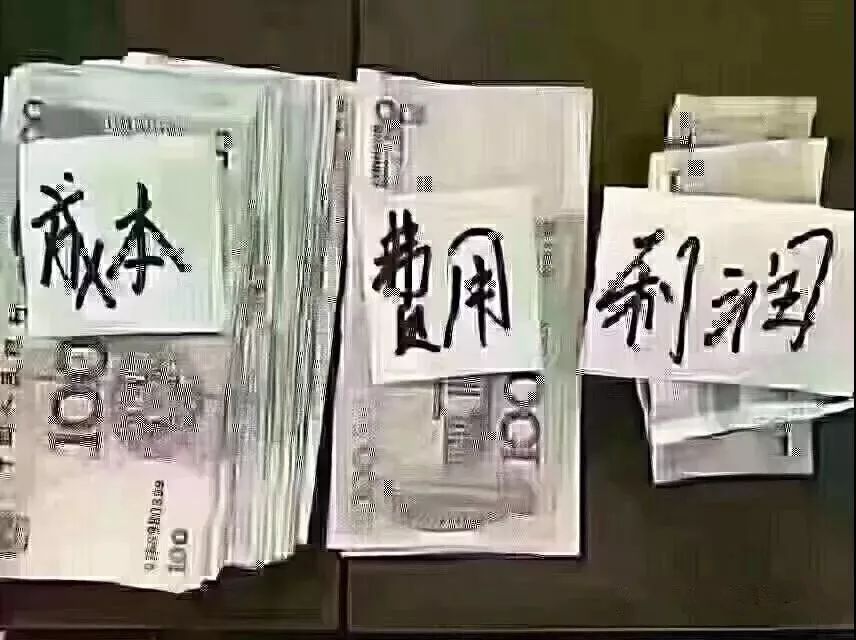 成本
费用
利润
100
100
100